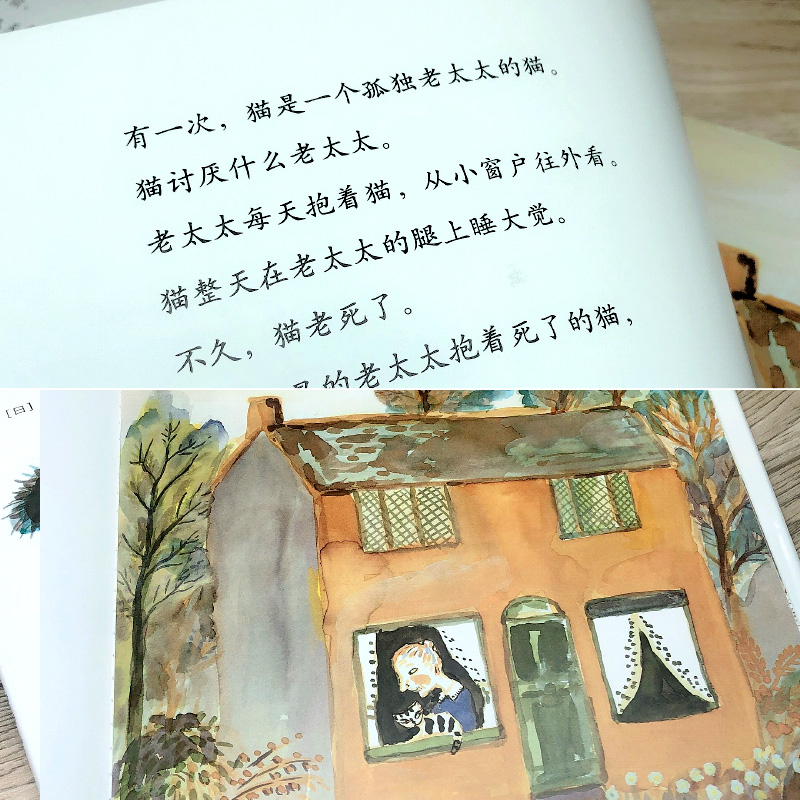 有一次，猫是一个孤独老太太的猫。
猫讨厌什么老太太。
老太太每天抱着猫，从小窗户往外看。
猫整天在老太太的腿上睡大觉。
不久，猫老死了。
的老太太抱着死了的猫，
[日]